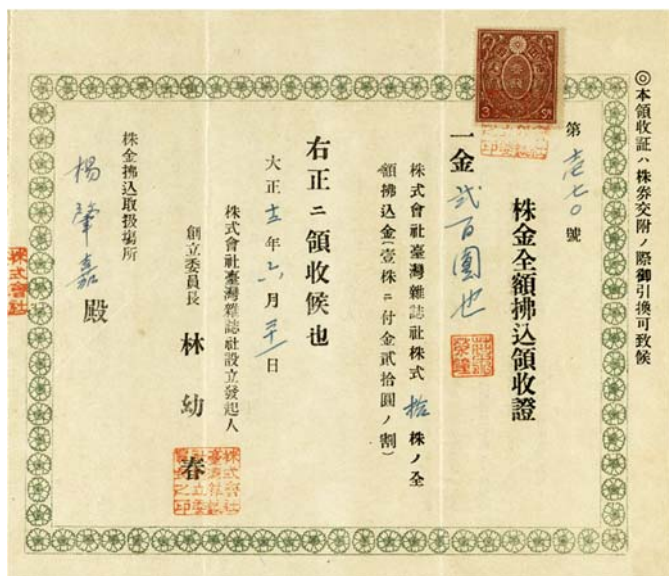 ◎本領收証ハ株券交附ノ際御引換可致候
第壱七〇號
株金全額拂込領收證
一金弐百圓也
株式會社臺灣雜誌社株式拾株ノ全
額拂込金(壹株ニ付金貳拾圓ノ割)
右正ニ領收候也
大正十二年六月三十日
株式會社臺灣雜誌社設立發起人
創立委員長 林幼春
株金拂込取扱場所
楊肇嘉殿
株式會社